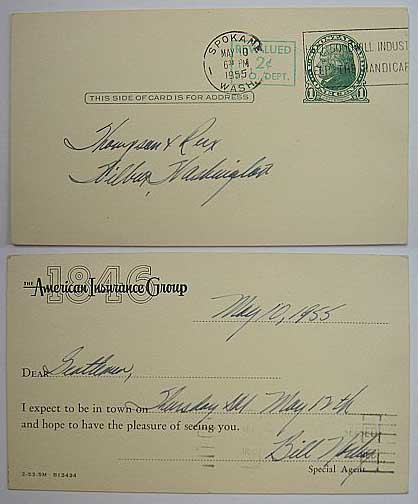 SPOKANE
MAY 10
6 PM
1955
WASH.
REVALUED
2¢
P.O. DEPT.
GOODWILL INDUST
THE HANDICAP
THIS SIDE OF CARD IS FOR ADDRESS
Thompson & Rux
Wilbur, Washington
1846
THE American Insurance Group
May 10, 1955
DEAR Gentlemen,
I expect to be in town on Thursday May 12th
and hope to have the pleasure of seeing you.
Bill
Special Agent
2-53-5M